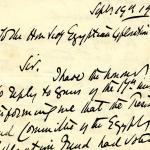 Sept 19th 19
To the Hon Secy Egyptian Exploration
Sir.
I have the honour
to reply to yours of the 17th
informing me that the
and Committee of the Egypt
Fund had voted